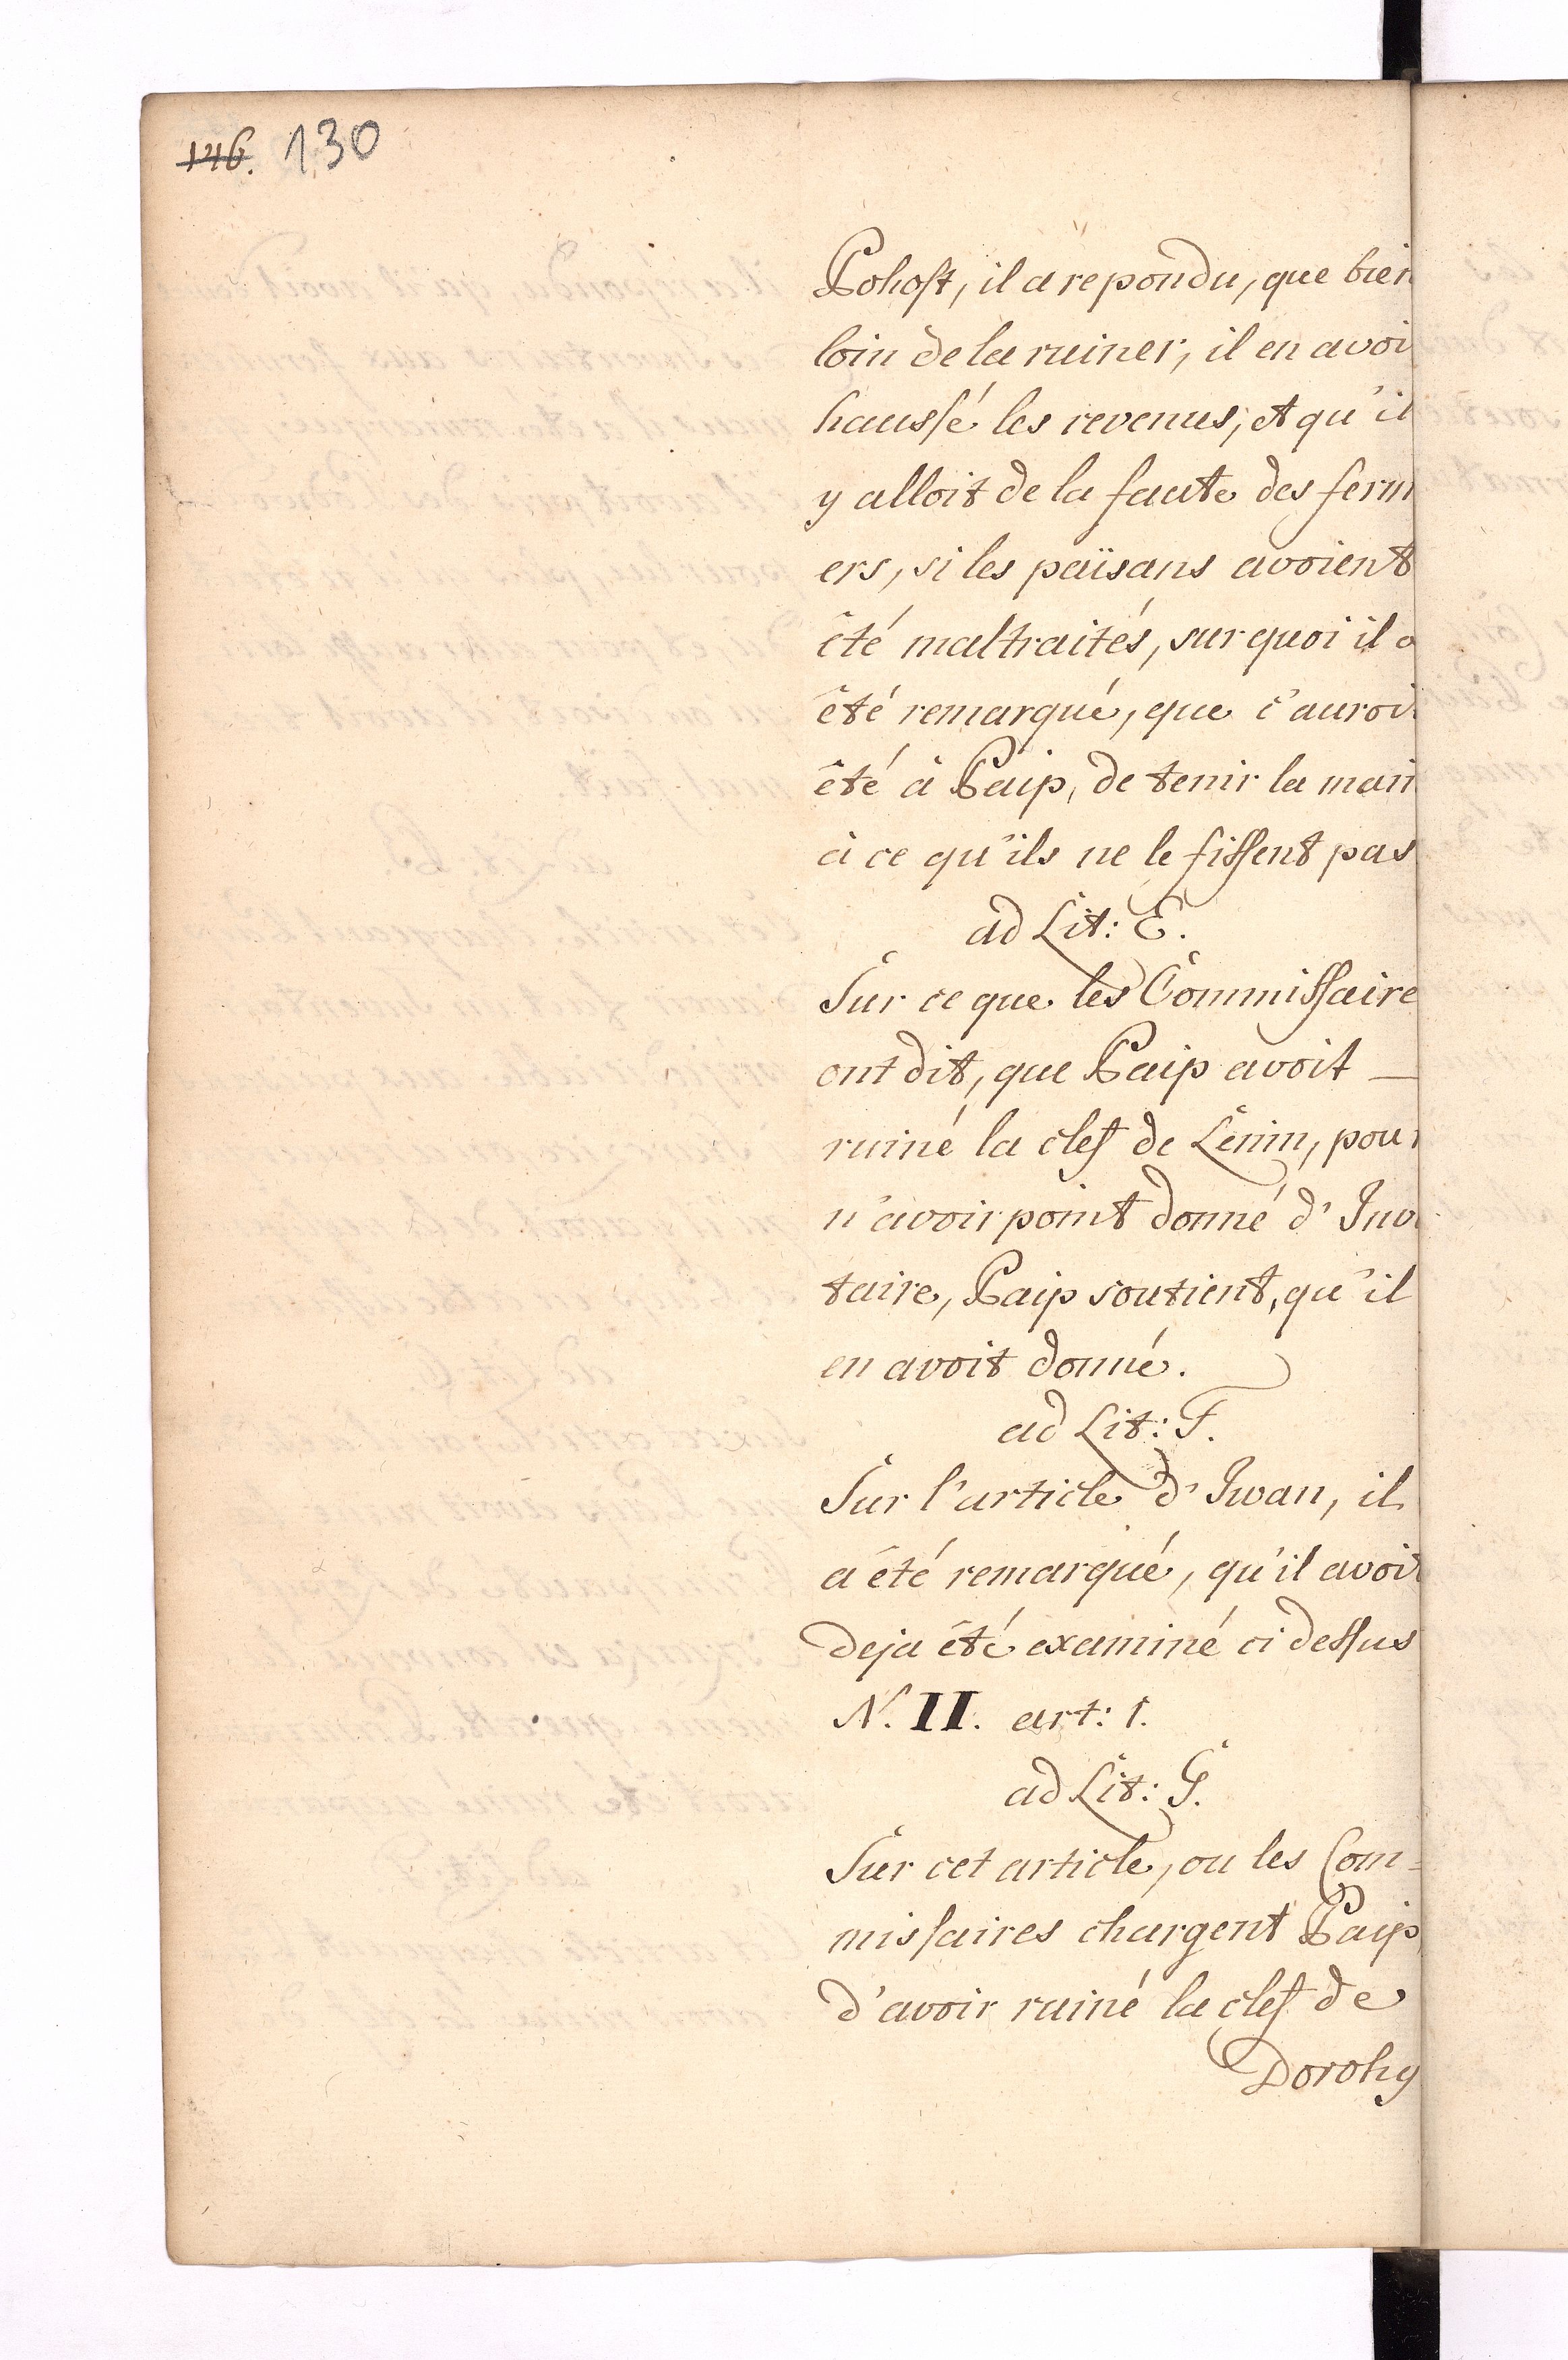 146. 130
Pohost, il a repondu, que bien
loin de la ruiner, il en avoi
haussé les revenus, et qu'il
y alloit de la faute des ferm
ers, si les païsans avoient
êté maltraités, sur quoi il a
êté remarqué, que c'auroi
êté à Paip, de tenir la main
à ce qu'ils ne le fissent pas
ad Lit: E.
Sur ce que les Commissaire
ont dit, que Paip avoit —
ruiné la clef de Lenin, pour
n'avoir point donné d'Inv
taire, Paip soutient, qu'il
en avoit donné.
ad Lit: F.
Sur l'article d'Iwan, il
a êté remarqué, qu'il avoit
deja êté examiné ci dessus
N. II. art: 1.
ad Lit: G.
Sur cet article, ou les Com=
missaires chargent Paip
d'avoir ruiné la clef de
Dorohy